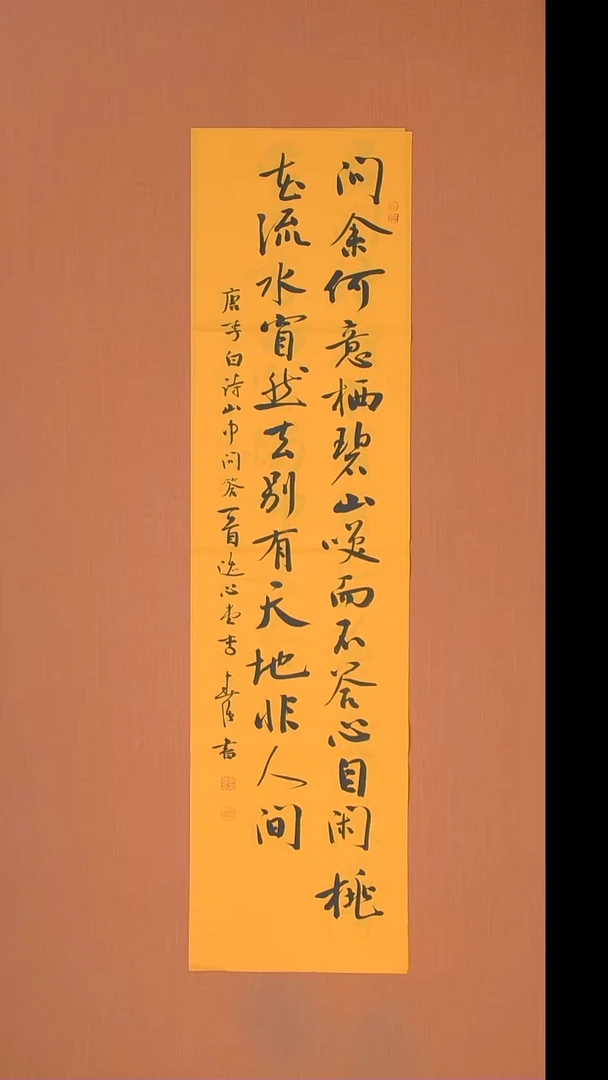 问余何意栖碧山咲而不答心自闲桃
花流水窅然去别有天地非人间
唐李白诗山中问答一首逸心堂 书